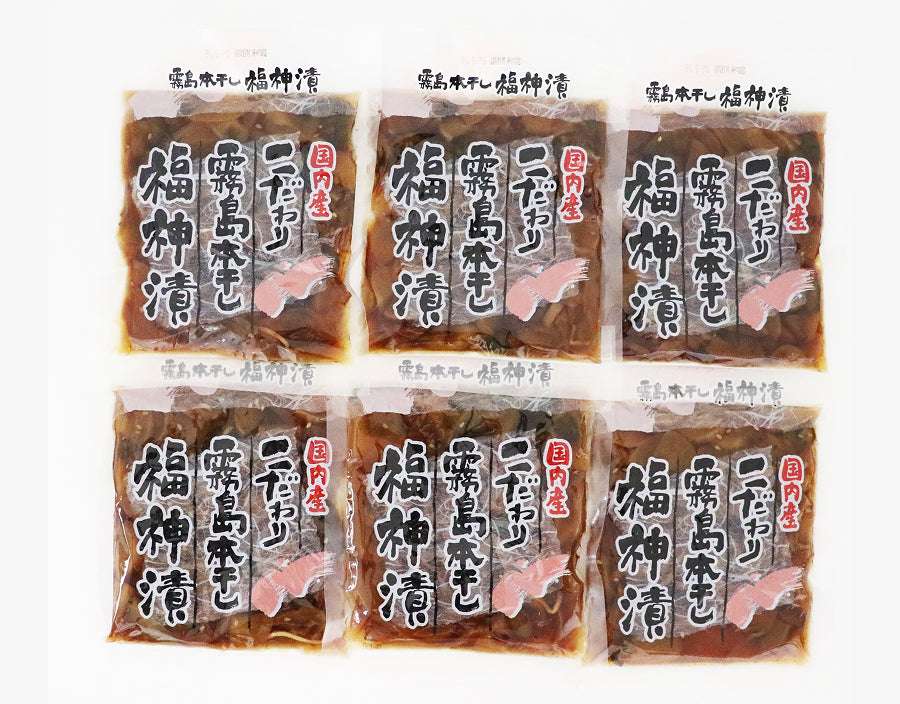 霧島本干し 福神漬
国内産
こだわり
霧島本干し
福神漬
霧島本干し 福神漬
国内産
こだわり
霧島本干し
福神漬
霧島本干し 福神漬
国内産
こだわり
霧島本干し
福神漬
霧島本干し 福神漬
国内産
こだわり
霧島本干し
福神漬
霧島本干し 福神漬
国内産
こだわり
霧島本干し
福神漬
霧島本干し 福神漬
国内産
こだわり
霧島本干し
福神漬